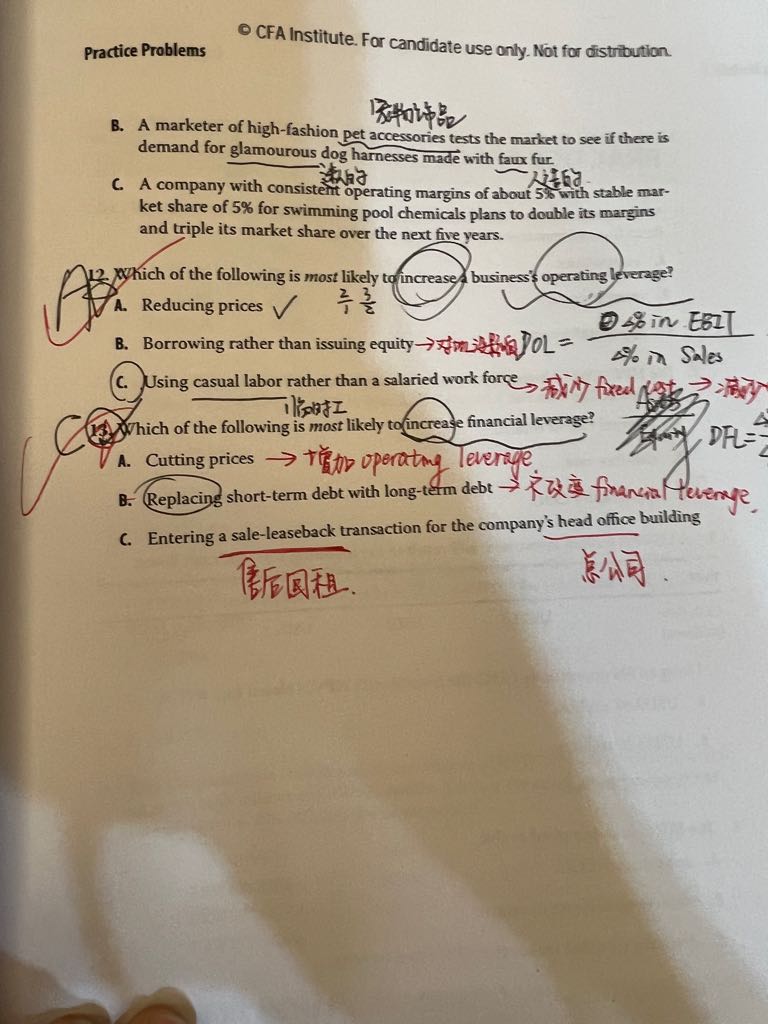 © CFA Institute. For candidate use only. Not for distribution.
Practice Problems
宠物饰品
B. A marketer of high-fashion pet accessories tests the market to see if there is
demand for glamourous dog harnesses made with faux fur.
迷人的 人造的
C. A company with consistent operating margins of about 5% with stable mar-
ket share of 5% for swimming pool chemicals plans to double its margins
and triple its market share over the next five years.
A
12. Which of the following is most likely to increase a business's operating leverage?
A. Reducing prices ✓ 2/1 3/2
B. Borrowing rather than issuing equity → DOL = Δ% in EBIT
Δ% in Sales
C. Using casual labor rather than a salaried work force → 减少 fixed cost → 减少
临时工
C
13. Which of the following is most likely to increase financial leverage?
DFL =
A. Cutting prices → 增加 operating leverage.
B. Replacing short-term debt with long-term debt → 不改变 financial leverage.
C. Entering a sale-leaseback transaction for the company's head office building
售后回租. 总公司.